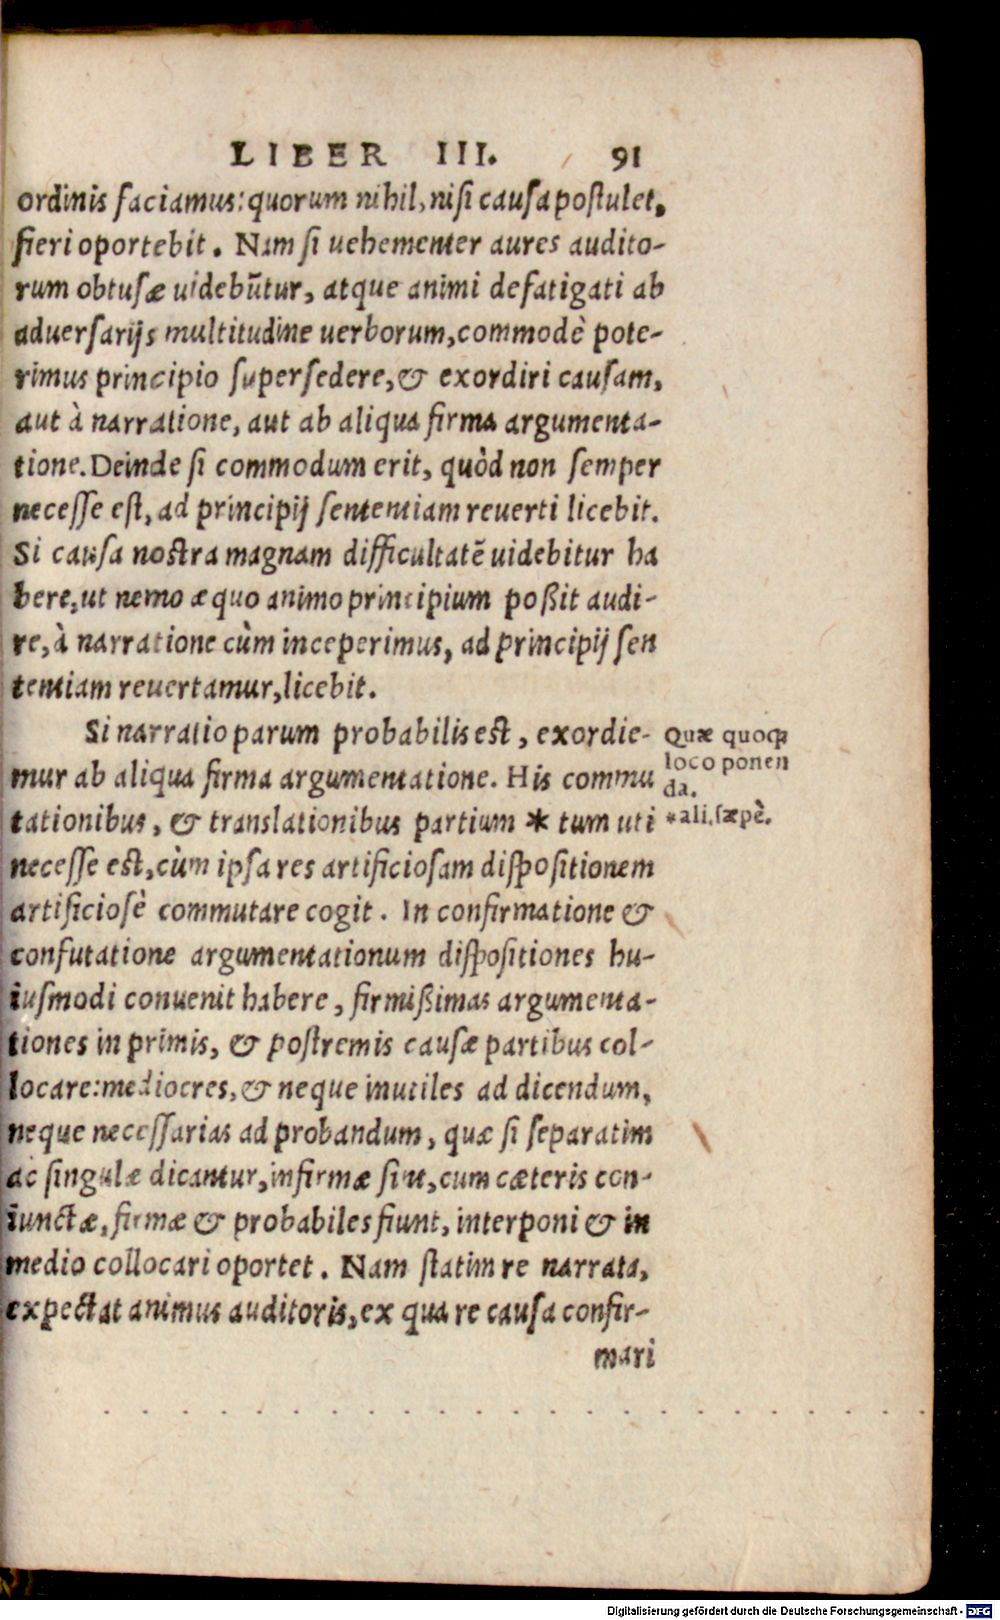 LIBER III. 91
ordinis faciamus: quorum nihil, nisi causa postulet,
fieri oportebit. Nam si uehementer aures audito-
rum obtusæ uidebũtur, atque animi defatigati ab
aduersarijs multitudine uerborum, commodè pote-
rimus principio supersedere, & exordiri causam,
aut à narratione, aut ab aliqua firma argumenta-
tione. Deinde si commodum erit, quòd non semper
necesse est, ad principij sententiam reuerti licebit.
Si causa nostra magnam difficultatẽ uidebitur ha
bere, ut nemo æquo animo principium poßit audi-
re, à narratione cùm inceperimus, ad principij sen
tentiam reuertamur, licebit.
Si narratio parum probabilis est, exordie-
mur ab aliqua firma argumentatione. His commu
tationibus, & translationibus partium * tum uti
necesse est, cùm ipsa res artificiosam dispositionem
artificiosè commutare cogit. In confirmatione &
confutatione argumentationum dispositiones hu-
iusmodi conuenit habere, firmißimas argumenta-
tiones in primis, & postremis causæ partibus col-
locare: mediocres, & neque inutiles ad dicendum,
neque necessarias ad probandum, quæ si separatim
ac singulæ dicantur, infirmæ sint, cum cæteris con-
iunctæ, firmæ & probabiles fiunt, interponi & in
medio collocari oportet. Nam statim re narrata,
expectat animus auditoris, ex qua re causa confir-
mari
Quæ quoqꝫ
loco ponen
da.
*ali. sæpè.
Digitalisierung gefördert durch die Deutsche Forschungsgemeinschaft - DFG